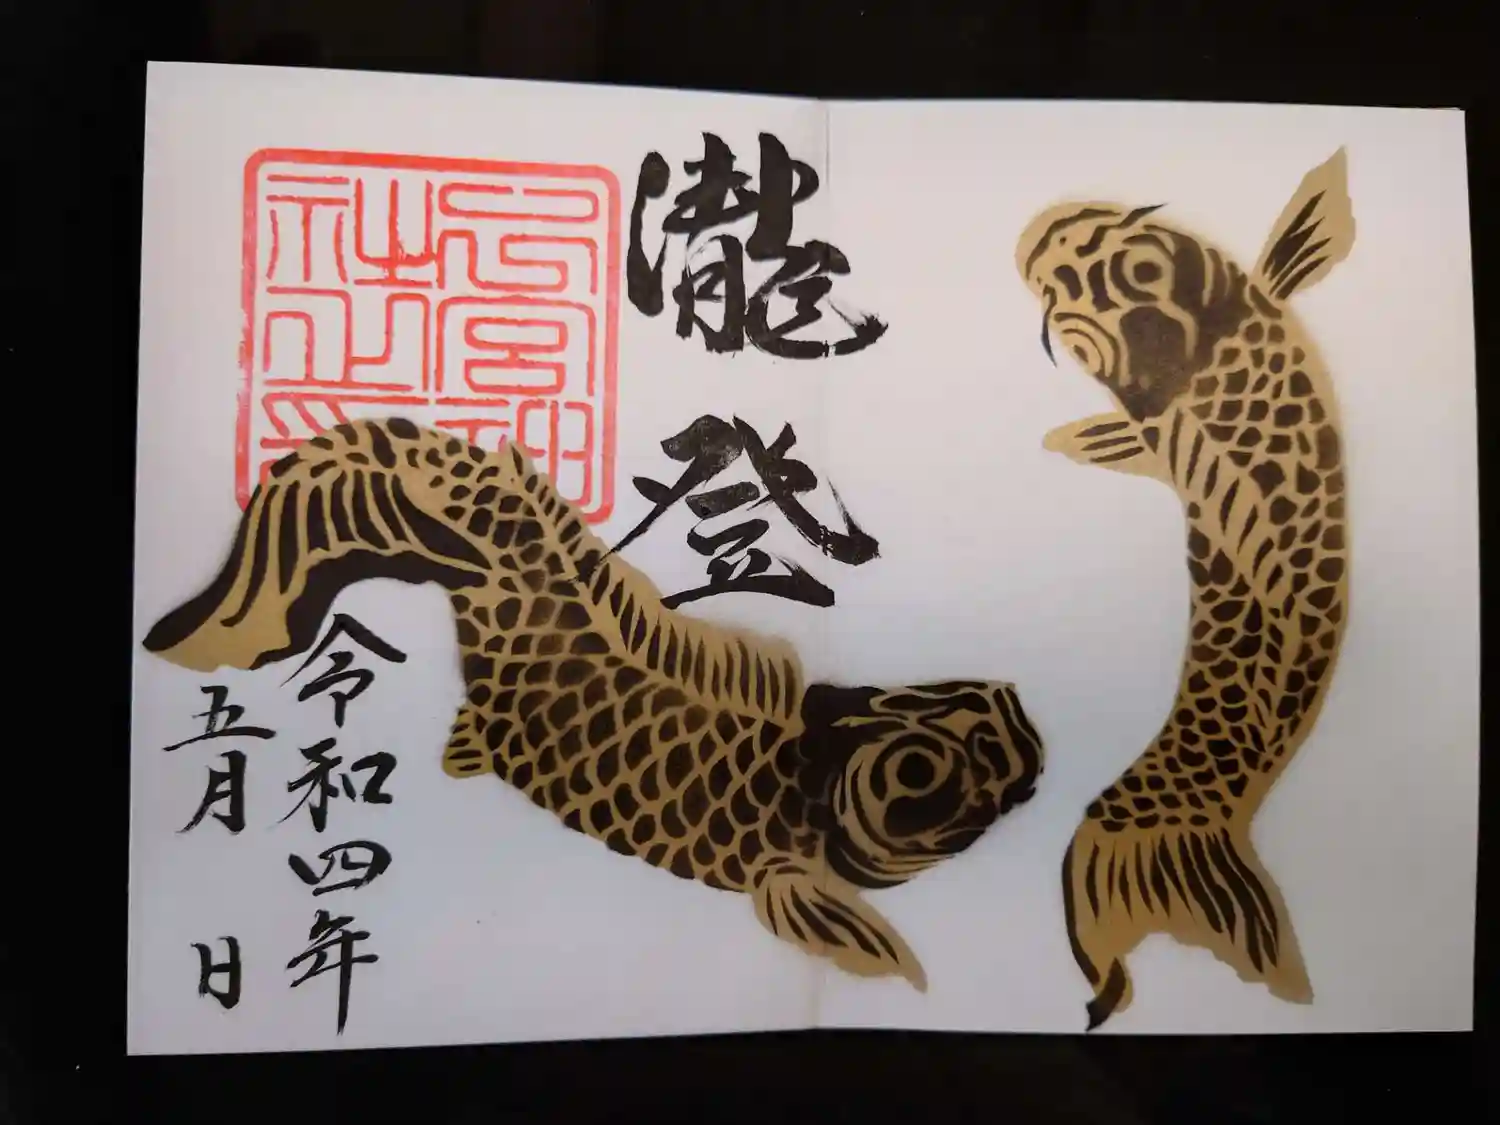 瀧登
令和四年
五月 日